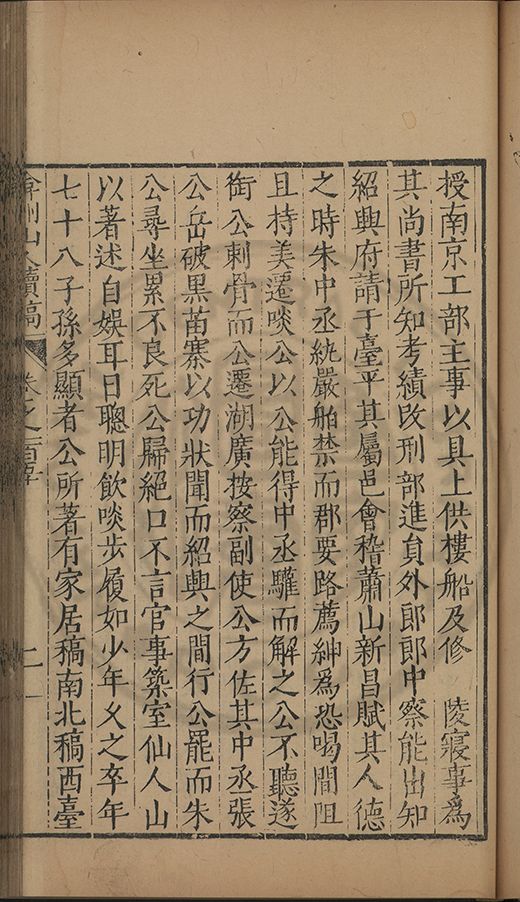 授南京工部主事以具上供樓船及修 陵寢事為
其尚書所知考績改刑部進員外郎郎中察能出知
紹興府請于臺平其屬邑會稽蕭山新昌賦其人德
之時朱中丞紈嚴舶禁而郡要路薦紳為恐喝間阻
且持美遷啖公以公能得中丞驩而解之公不聽遂
銜公刺骨而公遷湖廣按察副使公方佐其中丞張
公岳破黑苗寨以功狀聞而紹興之間行公罷而朱
公尋坐累不良死公歸絕口不言官事築室仙人山
以著述自娛耳目聰明飲啖步履如少年久之卒年
七十八子孫多顯者公所著有家居稿南北稿西臺
弇州山人續稿 卷之一百 二